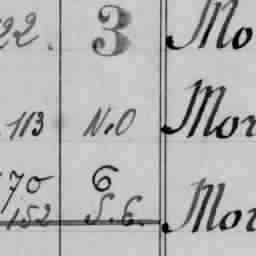 22. 3 Mo
113 N.O Mor
70 6
152 S.6. Mor